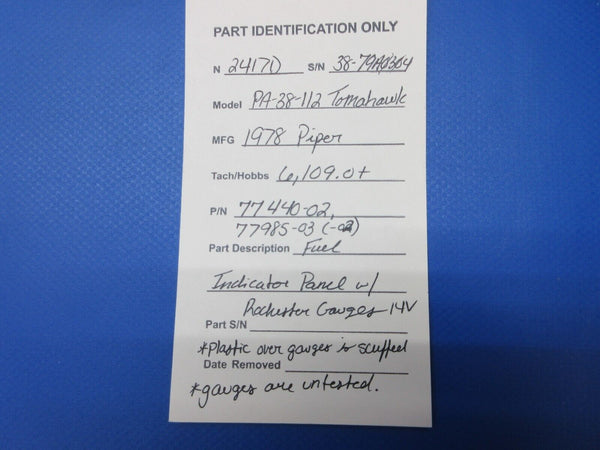 PART IDENTIFICATION ONLY
N 2417D S/N 38-79A0304
Model PA-38-112 Tomahawk
MFG 1978 Piper
Tach/Hobbs 6,109.0+
P/N 77440-02,
77985-03 (-02)
Part Description Fuel
Indicator Panel w/
Rochester Gauges 14V
Part S/N
*Plastic over gauges is scuffed
Date Removed
*gauges are untested.